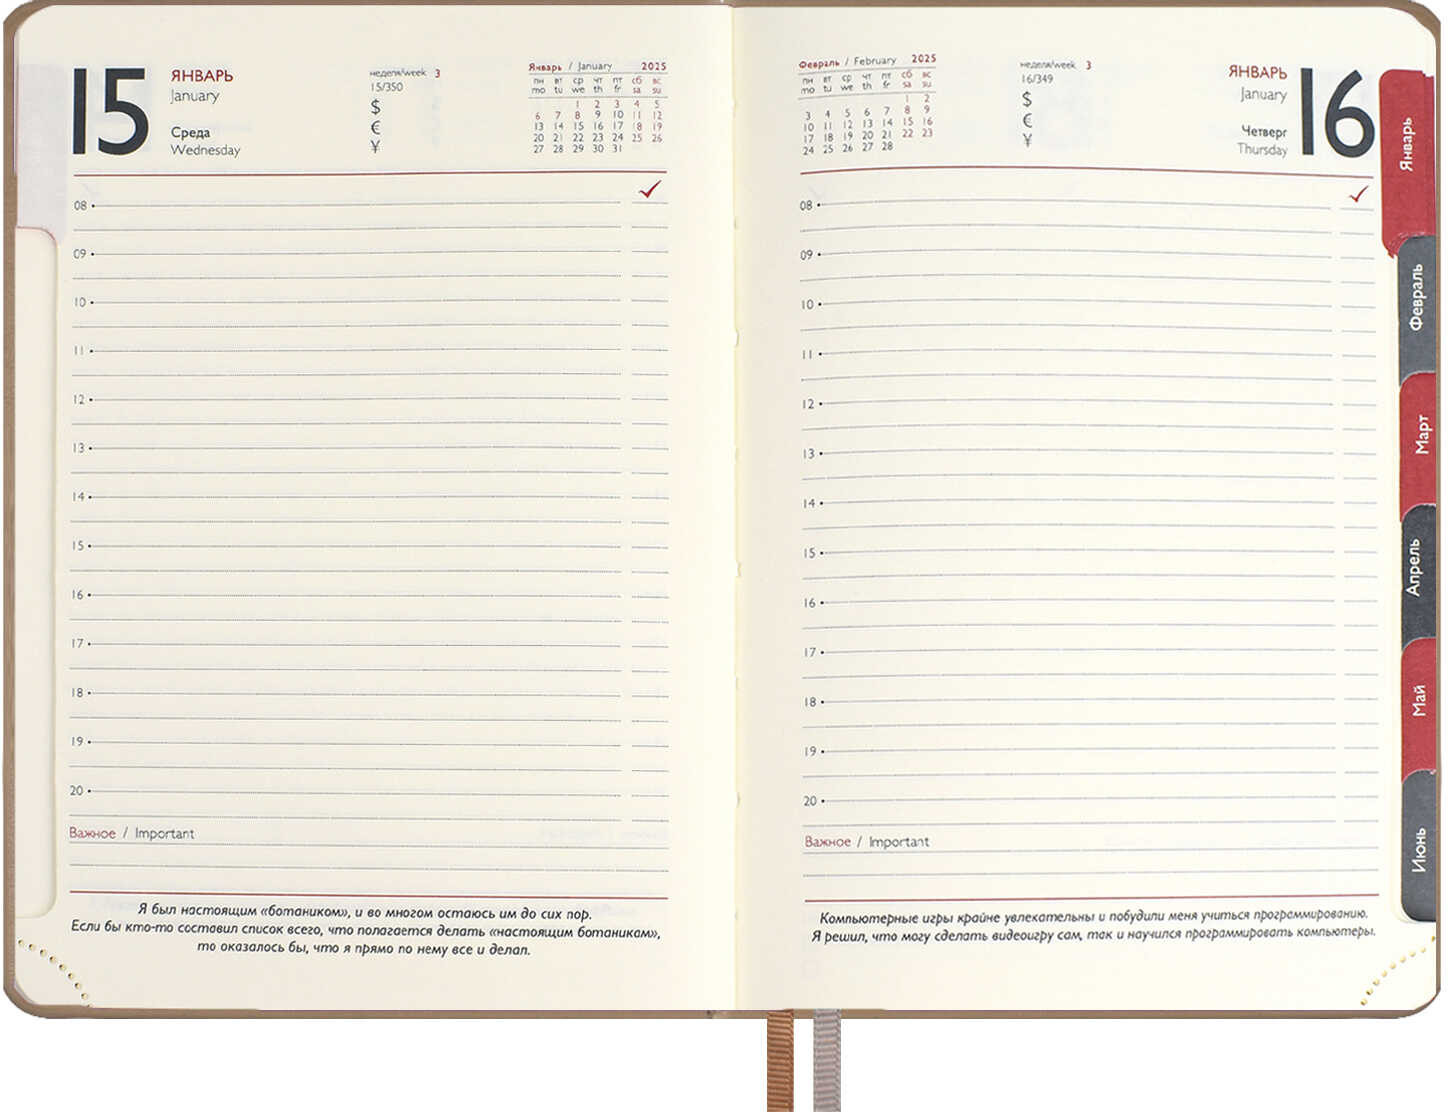 15
ЯНВАРЬ
January
Среда
Wednesday
неделя/week 3
15/350
$
€
¥
Январь / January 2025
пн вт ср чт пт сб вс
mo tu we th fr sa su
1 2 3 4 5
6 7 8 9 10 11 12
13 14 15 16 17 18 19
20 21 22 23 24 25 26
27 28 29 30 31
08
09
10
11
12
13
14
15
16
17
18
19
20
Важное / Important
Я был настоящим «ботаником», и во многом остаюсь им до сих пор.
Если бы кто-то составил список всего, что полагается делать «настоящим ботаникам»,
то оказалось бы, что я прямо по нему все и делал.
Февраль / February 2025
пн вт ср чт пт сб вс
mo tu we th fr sa su
1 2
3 4 5 6 7 8 9
10 11 12 13 14 15 16
17 18 19 20 21 22 23
24 25 26 27 28
неделя/week 3
16/349
$
€
¥
ЯНВАРЬ
January
Четверг
Thursday
16
08
09
10
11
12
13
14
15
16
17
18
19
20
Важное / Important
Компьютерные игры крайне увлекательны и побудили меня учиться программированию.
Я решил, что могу сделать видеоигру сам, так и научился программировать компьютеры.
Январь
Февраль
Март
Апрель
Май
Июнь